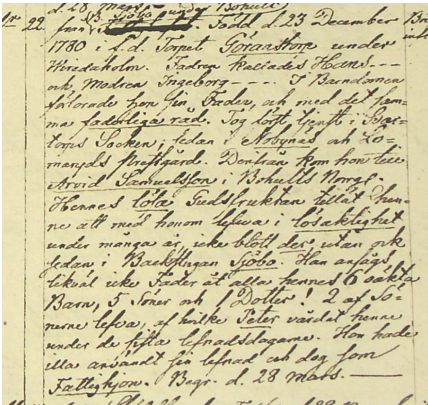 d. 28 Mars
22. från N. Sjöbo under Bohult. Född d. 23 December
1780 i f.d. Torpet Göranstorp under
Hvredaholm. Fadren kallades Hans ---
och Modren Ingeborg ----. I Barndomen
förlorade hon sin Fader, och med det sam-
ma faderliga råd. Tog först tjenst i Bar-
torps Socken; sedan i Nobynäs och Lo-
maryds Prestgård. Derifrån kom hon till
Arvid Samuelsson i Bohults Norrg.
Hennes lösa Gudsfruktan tillät hen-
ne att med honom lefwa i lösaktighet
under många år, icke blott der, utan ock
sedan i Backstugan Sjöbo. Han angafs
likväl icke Fader åt alla hennes 6 oäkta
Barn, 5 Söner och 1 Dotter! 2 af Sö-
nerne lefva, af hvilke Peter vårdat henne
under de sista lefnadsdagarne. Hon hade
illa användt sin lefnad och dog som
Fattighjon. Begr. d. 28 Mars. —